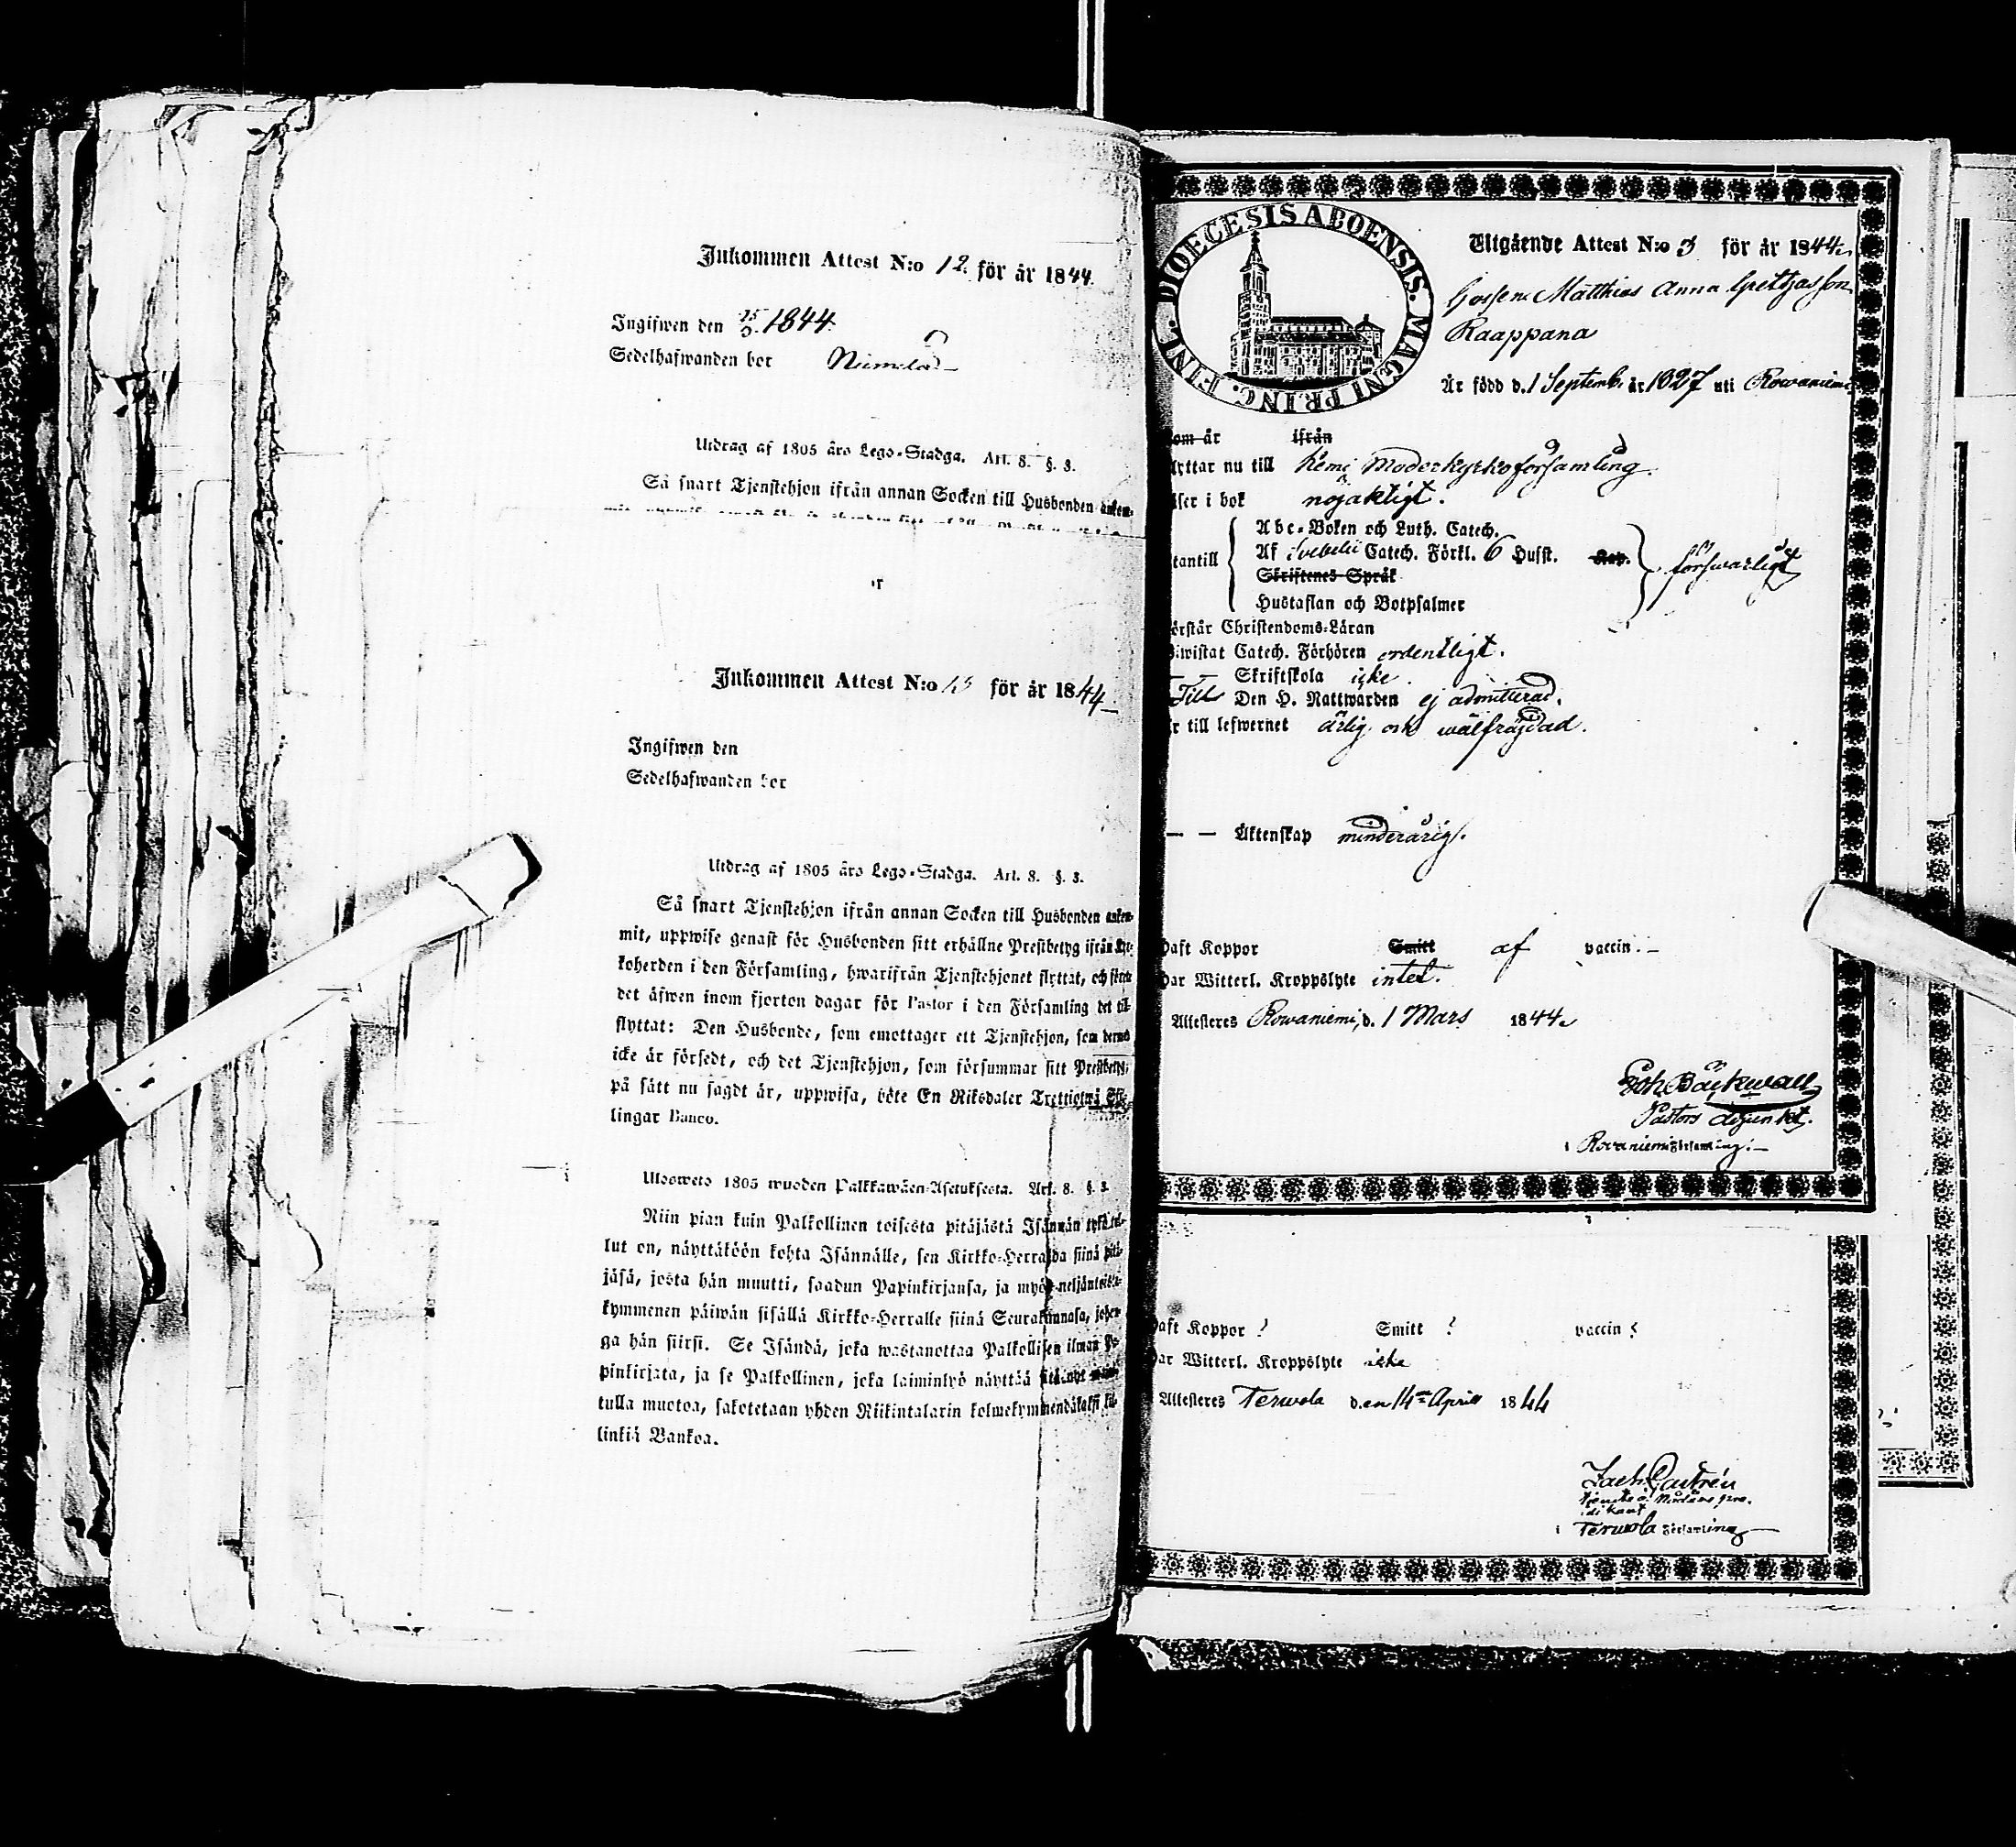 Inkommen Attest N:o 12. för år 1844.
Ingifwen den 15/3. 1844.
Sedelhafwanden bor Niemelä
Utdrag af 1805 års Lego-Stadga. Art. 8. §. 3.
Så snart Tjenstehjon ifrån annan Socken till Husbonden ankom-
Inkommen Attest N:o 13 för år 1844
Ingifwen den
Sedelhafwanden bor
Utdrag af 1805 års Lego-Stadga. Art. 8. §. 3.
Så snart Tjenstehjon ifrån annan Socken till Husbonden ankom-
mit, uppwise genast för Husbonden sitt erhållne Prestbetyg ifrån Kyr-
koherden i den Församling, hwarifrån Tjenstehjonet flyttat, och
det äfwen inom fjorton dagar för Pastor i den Församling det till
flyttat: Den Husbonde, som emottager ett Tjenstehjon, som dermed
icke är försedt, och det Tjenstehjon, som försummar sitt Prestbetyg,
på sätt nu sagdt är, uppwisa, böte En Riksdaler Trettiotwå Skil-
lingar Banco.
Ulosweto 1805 wuoden Palkkawäen-Asetuksesta. Art. 8. §. 3.
Niin pian kuin Palkollinen toisesta pitäjästä Isännän tykö tul-
lut on, näyttäköön kohta Isännälle, sen Kirkko-Herralda siinä pitä-
jäsä, josta hän muutti, saadun Papinkirjansa, ja myös neljäntoista-
kymmenen päiwän sisällä Kirkko-Herralle siinä Seurakunnasa, johon-
ga hän siirsi. Se Isändä, joka wastanottaa Palkollisen ilman Pa-
pinkirjata, ja se Palkollinen, joka laiminlyö näyttää sitä nyt
tulla muotoa, sakotetaan yhden Riikintalarin kolmekymmendäkaksi kil-
linkiä Bankoa.
DIOECESIS ABOENSIS. MAGNI PRINC. FINL.
Utgående Attest N:o 3 för år 1844.
Gossen Matthias Anna Gretasson
Raappana
Är född d. 1 Septemb. år 1827 uti Rowaniemi
som är ifrån
flyttar nu till Kemi Moderkyrkoförsamling.
läser i bok nöjaktigt.
utantill
Abc-Boken och Luth. Catech.
Af Svebelii Catech. Förkl. 6 Hufst. Kap.
Skriftenes Språk
Hustaflan och Botpsalmer
förswarligt
Förstår Christendoms-Läran
Biwistat Catech. Förhören ordentligt.
Skriftskola icke.
Till Den H. Nattwarden ej admitterad.
Är till lefwernet ärlig och wälfrägdad.
— — Äktenskap minderårig.
Haft Koppor Smitt af vaccin. –
Har Witterl. Kroppslyte intet.
Attesteres Rowaniemi, d. 1 Mars 1844.
Joh. Bäckwall
Pastors adjunkt.
i Rovaniemi Församling. –
Haft Koppor ? Smitt ? vaccin ?
Har Witterl. Kroppslyte icke
Attesteres Terwola den 14de April 1844
Zach. Castrén
i Terwola Församling